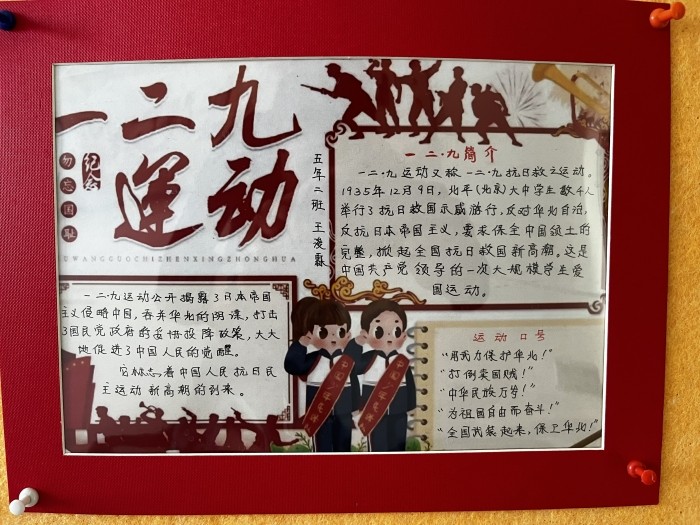 一二九
運动
纪念
勿忘国耻
UWANGGUOCHIZHENXINGZHONGHUA
五年二班 王凌霖
一二·九简介
一二·九运动又称一二·九抗日救亡运动。
1935年12月9日，北平(北京)大中学生数千人
举行了抗日救国示威游行，反对华北自治，
反抗日本帝国主义，要求保全中国领土的
完整，掀起全国抗日救国新高潮。这是
中国共产党领导的一次大规模学生爱
国运动。
一二·九运动公开揭露了日本帝国
主义侵略中国，吞并华北的阴谋，打击
了国民党政府的妥协投降政策，大大
地促进了中国人民的觉醒。
它标志着中国人民抗日民
主运动新高潮的到来。
运动口号
“用武力保护华北！”
“打倒卖国贼！”
“中华民族万岁！”
“为祖国自由而奋斗！”
“全国武装起来，保卫华北！”